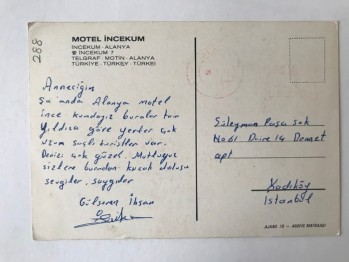 288
MOTEL İNCEKUM
İNCEKUM - ALANYA
☎ İNCEKUM 7
TELGRAF : MOTİN - ALANYA
TÜRKİYE - TURKEY - TÜRKEI
Anneciğim
Şu anda Alanya motel
ince kumdayız buralar tam
Yıldıza göre yerler çok
uzun saçlı turistler var.
Deniz çok güzel. Mutluyuz
sizlere buradan kucak dolusu
sevgiler, saygılar
Gülseren İhsan
Süleyman Paşa Sok
No 61 Daire 14 Demet
apt
Kadıköy
İstanbul
AJANS 18 -